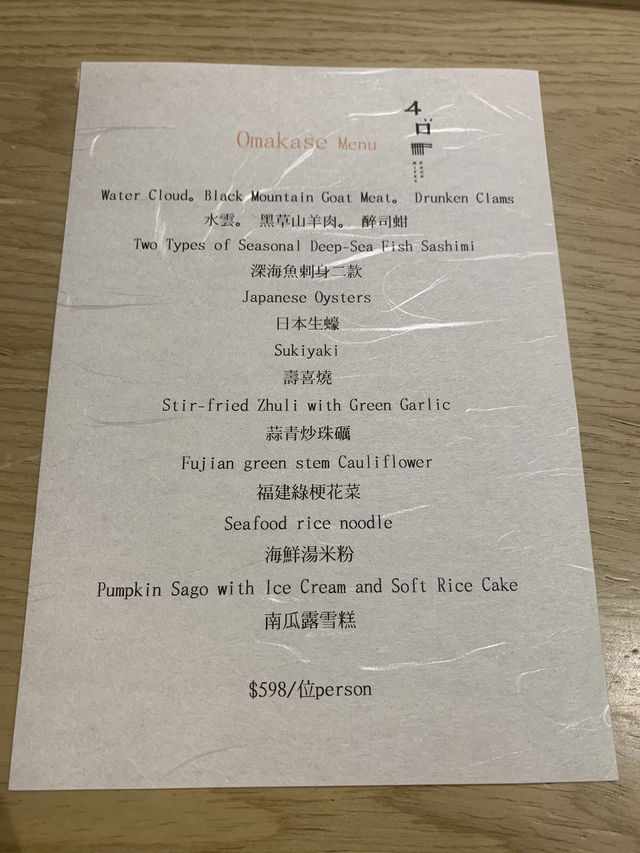 4
Omakase Menu
Water Cloud。Black Mountain Goat Meat。 Drunken Clams
水雲。 黑草山羊肉。 醉司蚶
Two Types of Seasonal Deep-Sea Fish Sashimi
深海魚刺身二款
Japanese Oysters
日本生蠔
Sukiyaki
壽喜燒
Stir-fried Zhuli with Green Garlic
蒜青炒珠礪
Fujian green stem Cauliflower
福建綠梗花菜
Seafood rice noodle
海鮮湯米粉
Pumpkin Sago with Ice Cream and Soft Rice Cake
南瓜露雪糕
$598/位person